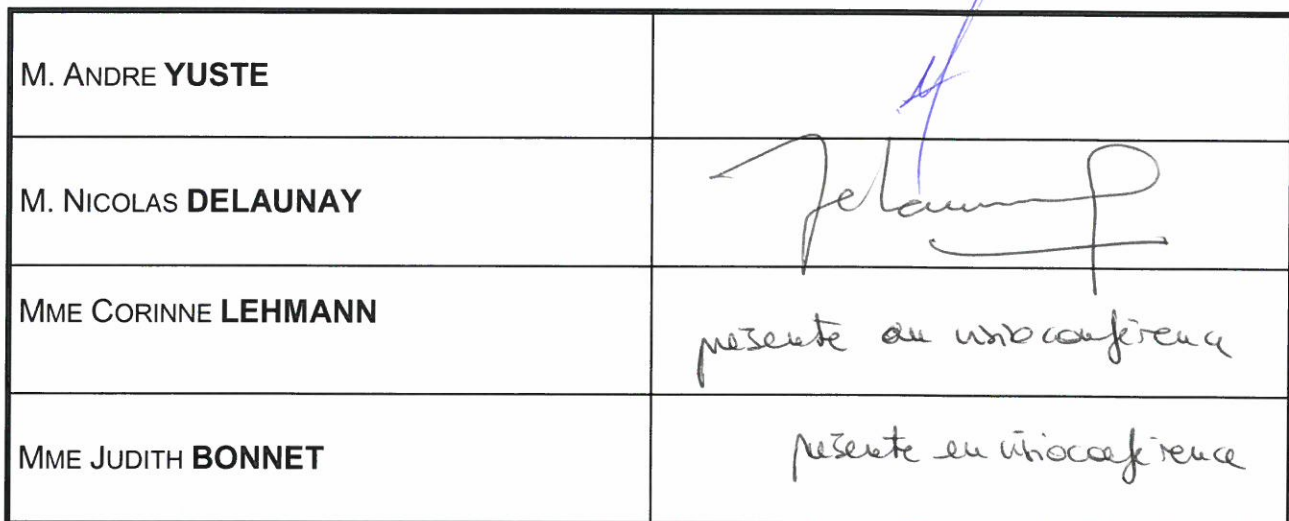 M. ANDRE YUSTE
M. NICOLAS DELAUNAY
Delaunay
MME CORINNE LEHMANN
présente en visioconférence
MME JUDITH BONNET
présente en visioconférence